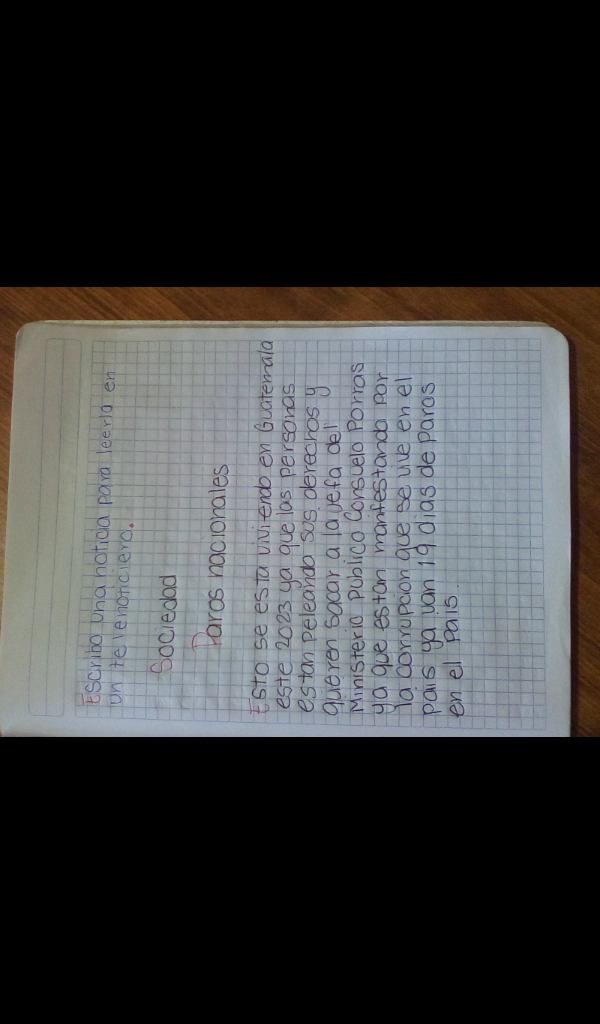 Escribo una noticia para leerla en
un telenoticiero.
Sociedad
Paros nacionales
Esto se esta viviendo en Guatemala
este 2023 ya que las personas
estan peleando sus derechos y
queren sacar a la jefa del
Ministerio Público Consuelo Porras
ya que estan manfestando por
la corrupcion que se vive en el
pais ya van 19 dias de paros
en el pais.